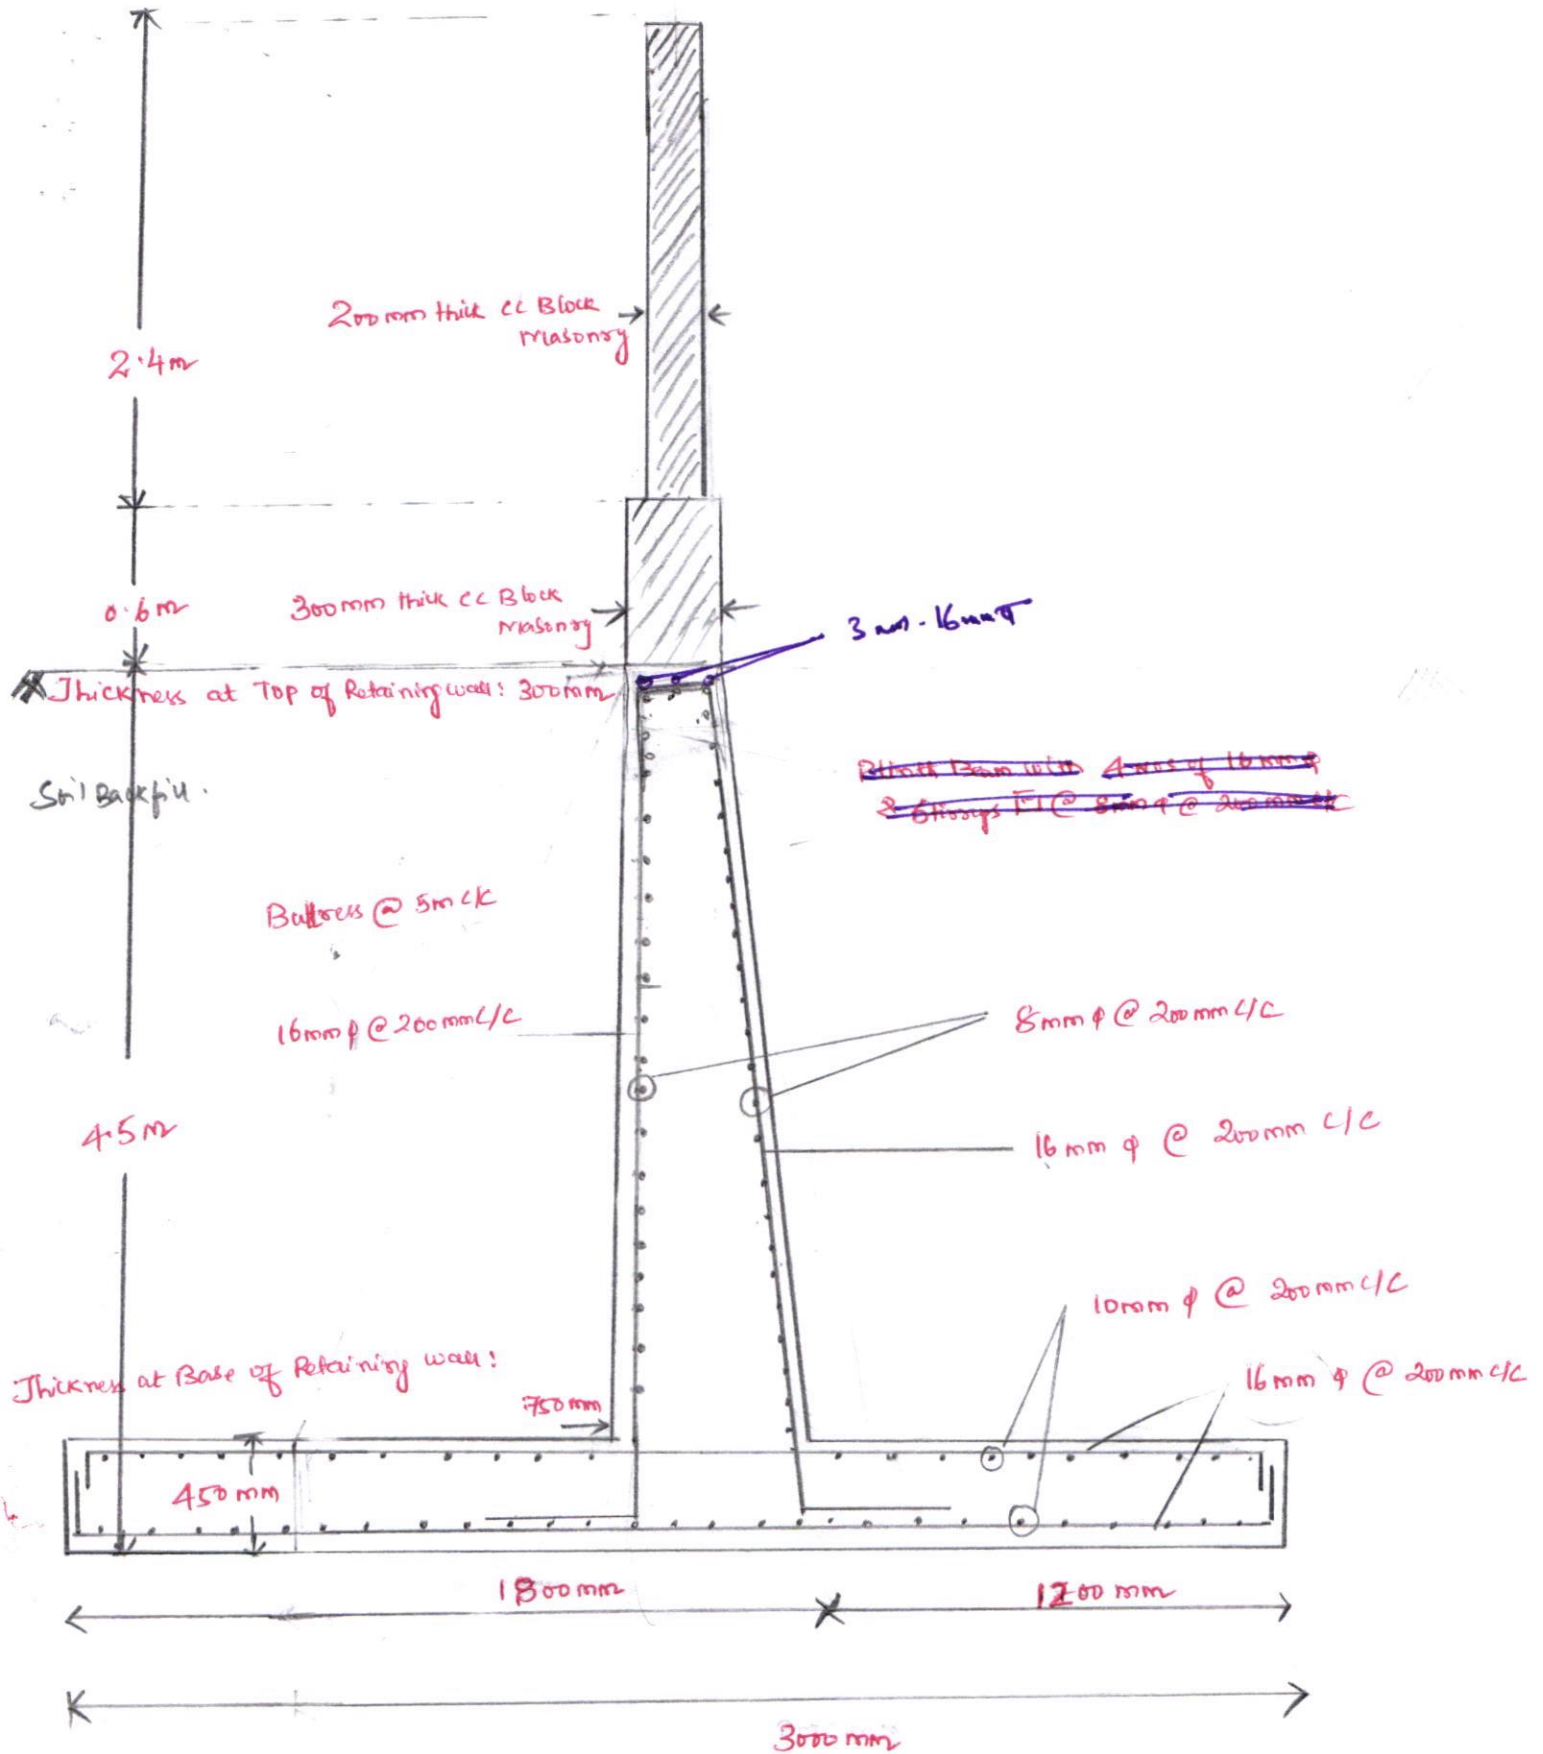 200mm thick CC Block
Masonry
2.4m
0.6m
300mm thick CC Block
Masonry
3 nos - 16mmφ
Thickness at Top of Retaining wall: 300mm
Plinth Beam with 4 nos of 16mmφ
& Stirrups @ 8mmφ @ 200mm C/C
Soil Backfill.
Buttress @ 5m c/c
16mmφ @ 200mm C/C
8mmφ @ 200mm C/C
4.5m
16mm φ @ 200mm C/C
10mm φ @ 200mm C/C
Thickness at Base of Retaining wall:
750mm
16mm φ @ 200mm C/C
450mm
1800mm
1200mm
3000mm